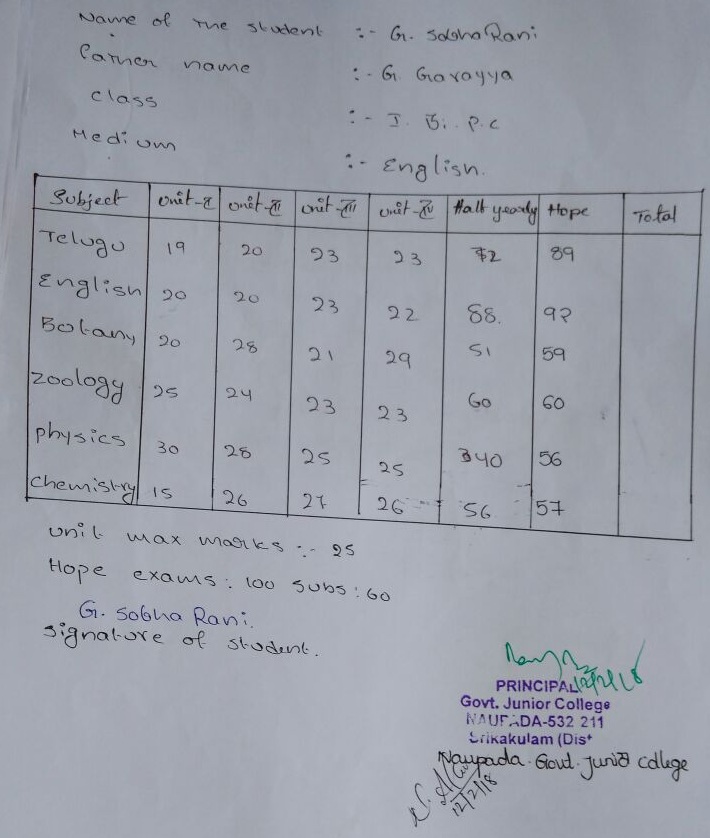 Name of the student :- G. Sobha Rani
Father name :- G. Gavayya
Class :- I. Bi. P.C
Medium :- English.
Subject Unit-I Unit-II Unit-III Unit-IV Half yearly Hope Total
Telugu 19 20 23 23 72 89
English 20 20 23 22 88. 92
Botany 20 28 21 29 51 59
Zoology 25 24 23 23 60 60
Physics 30 28 25 25 40 56
Chemistry 15 26 27 26 56 57
Unit max marks :- 25
Hope exams : 100 subs : 60
G. Sobha Rani.
Signature of student.
12/2/18
PRINCIPAL
Govt. Junior College
NAUPADA-532 211
Srikakulam (Dist
Naupada. Govt. Junior College
12/2/18